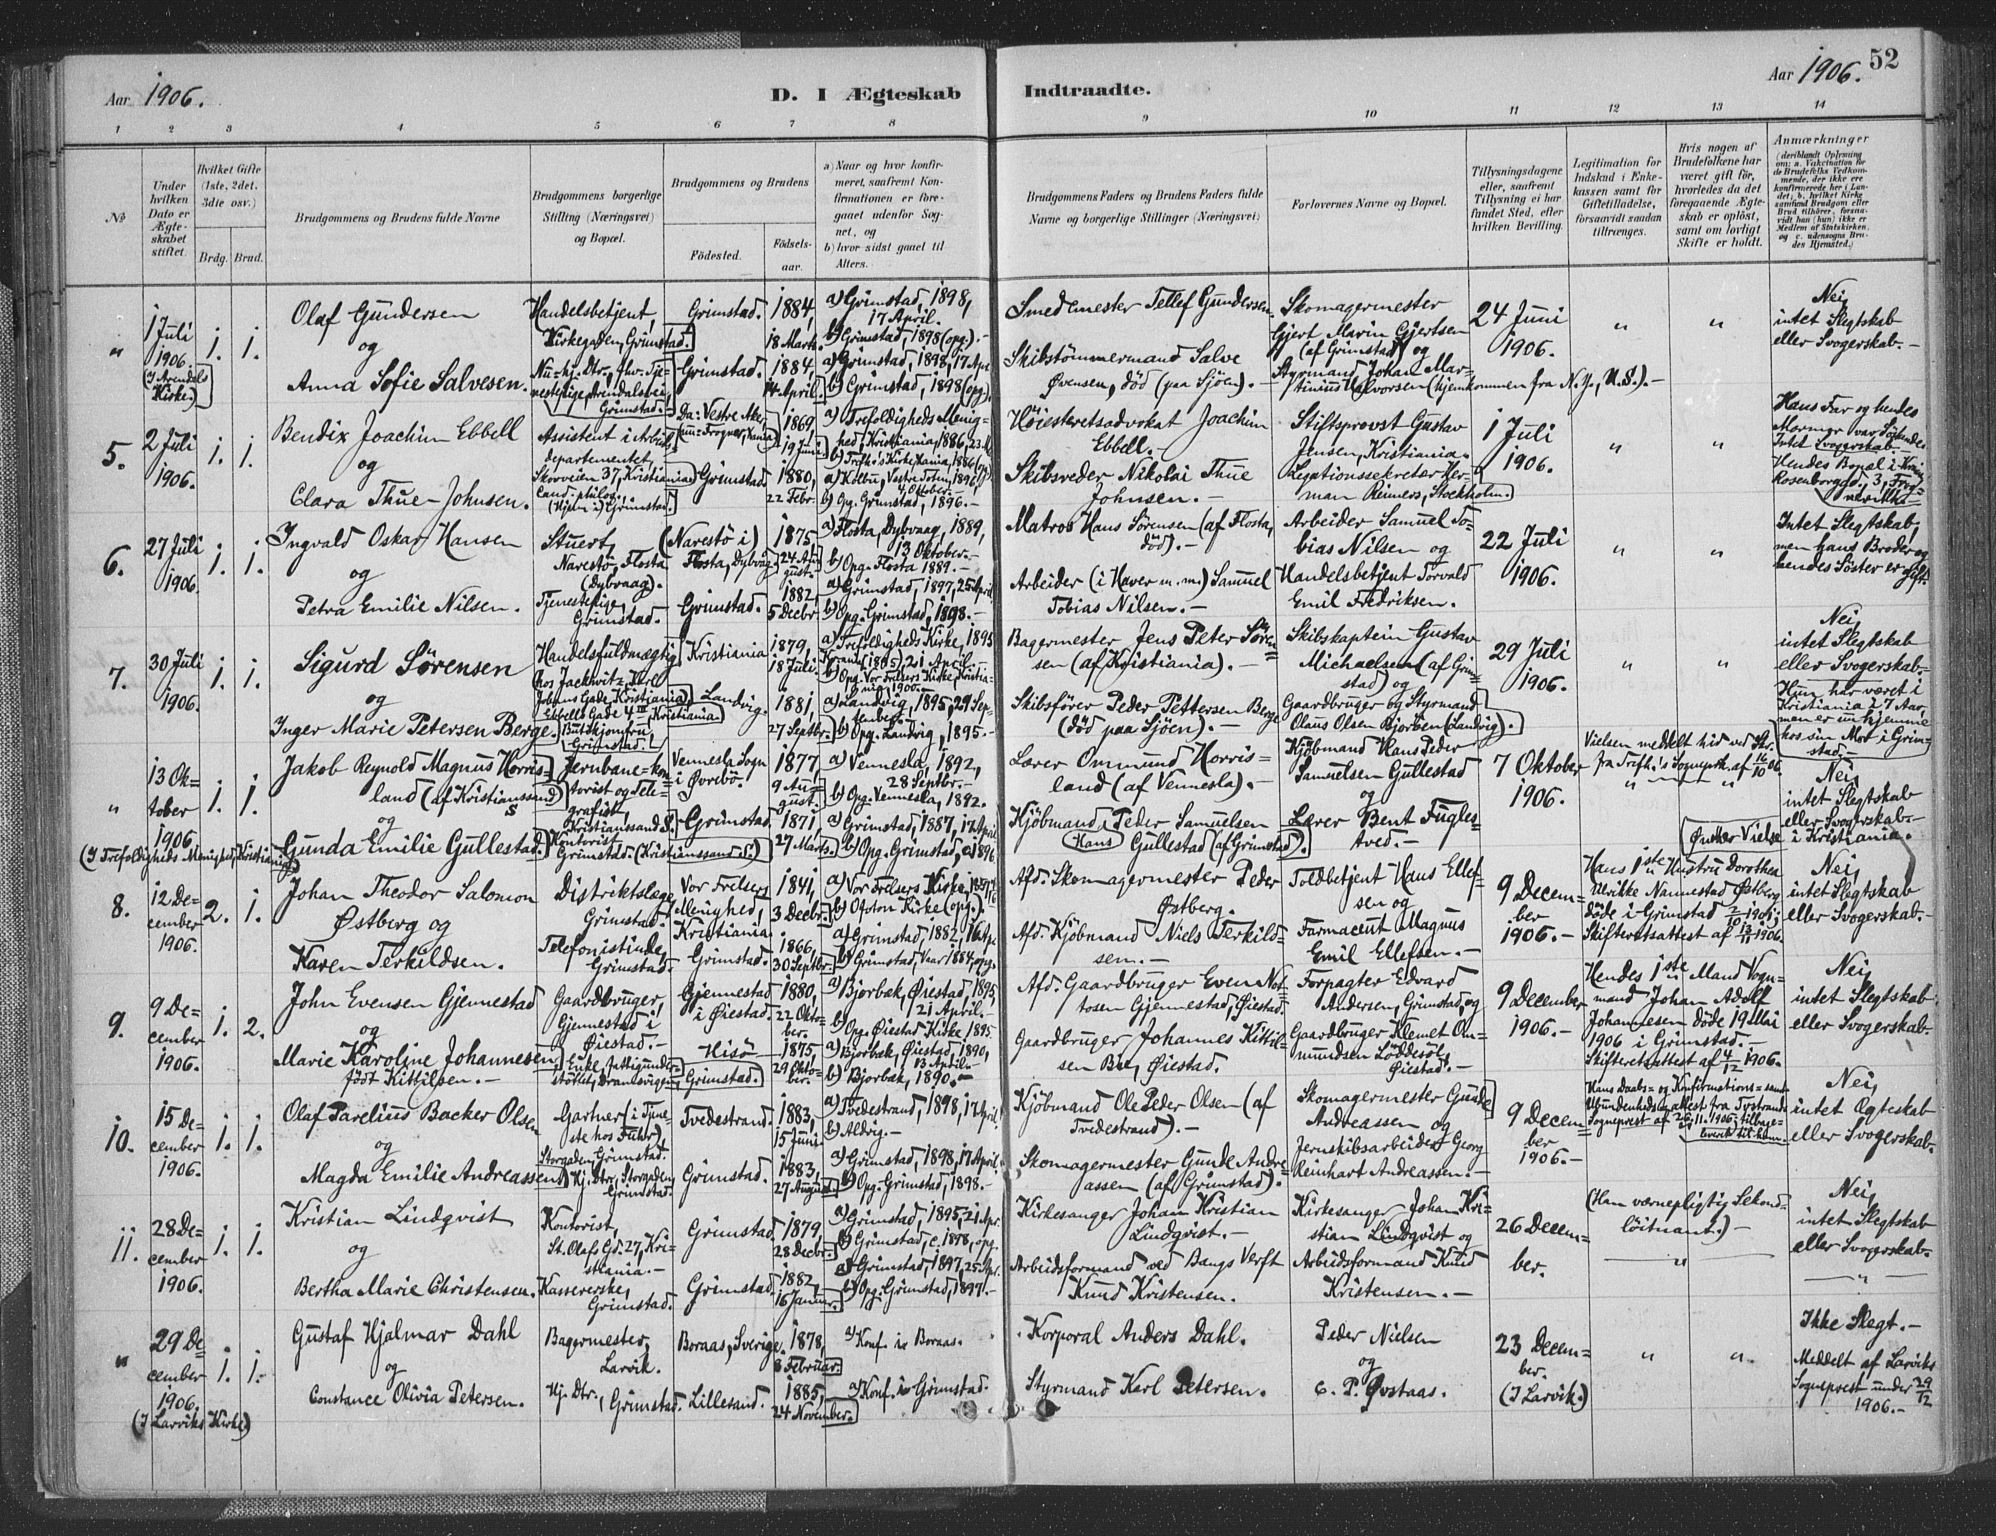 Aar 1906.
D. I Ægteskab Indtraadte.
Aar 1906. 52
1 2 3 4 5 6 7 8 9 10 11 12 13 14
№
Under hvilken Dato er Ægteskabet stiftet.
Hvilket Gifte (1ste, 2det, 3die osv.)
Brdg. Brud.
Brudgommens og Brudens fulde Navne
Brudgommens borgerlige Stilling (Næringsvei) og Bopæl.
Brudgommens og Brudens
Fødested.
Fødselsaar.
a) Naar og hvor konfirmeret, saafremt Konfirmationen er foregaaet udenfor Sognet, og
b) hvor sidst gaaet til Alters.
Brudgommens Faders og Brudens Faders fulde Navne og borgerlige Stillinger (Næringsvei)
Forlovernes Navne og Bopæl.
Tillysningsdagene eller, saafremt Tillysning ei har fundet Sted, efter hvilken Bevilling.
Legitimation for Indskud i Enkekassen samt for Giftetilladelse, forsaavidt saadan tiltrænges.
Hvis nogen af Brudefolkene har været gift før, hvorledes da det foregaaende Ægteskab er opløst, samt om lovligt Skifte er holdt.
Anmærkninger
" 1 Juli 1906. (I Arendals Kirke.) 1. 1.
Olaf Gundersen
og
Anna Sofie Salvesen.
Handelsbetjent
Kirkegaden, Grimstad.
Grimstad. 1884, 18 Marts.
Grimstad. 1884, 14 April.
a) Grimstad, 1898, 17 April.
b) Grimstad, 1898 (opg.).-
a) Grimstad, 1898, 17 Apr.
b) Grimstad, 1898 (opg.)
Smedemester Tellef Gundersen.
Skibstømmermand Salve Øvensen, død (paa Sjøen).-
Skomagermester Gjert Marin Gjertsen (af Grimstad) og
Styrmand Johan Martinius Halvorsen (hjemkommen fra N.Y., U.S.).-
24 Juni 1906.
" "
Nei, intet Slegtskab eller Svogerskab.-
5. 2 Juli 1906. 1. 1.
Bendix Joachim Ebbell
og
Clara Thue-Johnsen.
Assistent i Arbeidsdepartementet,
Skovveien 37, Kristiania,
Cand. philos.
(Hjem i) Grimstad.
1869 19 Juni
Grimstad. 1880, 22 Febr.
a) Trefoldigheds Menighed, Kristiania, 1886
a) Kolbu, Vestre Toten, 1896, 4 Oktober.-
b) Opg. Grimstad, 1896.-
Høiesteretsadvokat Joachim Ebbell.
Skibsreder Nikolai Thue Johnsen.-
Stiftsprovst Gustav Jensen, Kristiania.
Legationssekretær Herman Reimers, Stockholm.
1 Juli 1906.
" "
Hans Far og hendes Mormor var Søskende
Intet Svogerskab.-
6. 27 Juli 1906. 1. 1.
Ingvald Oskar Hansen
og
Petra Emilie Nilsen.
Stuert, Narestø, Flosta (Dybvaag).
Tjenestepige, Grimstad.
(Narestø i) Flosta, Dybvaag. 1875 24 August.
Grimstad. 1882, 5 Decbr
a) Flosta, Dybvaag, 1889, 13 Oktober.-
b) Opg. Flosta 1889.-
a) Grimstad, 1897, 25 April
b) Opg. Grimstad, 1898.-
Matros Hans Sørensen (af Flosta, død).-
Arbeider (i Haver m.m.) Samuel Tobias Nilsen.-
Arbeider Samuel Tobias Nilsen og
Handelsbetjent Torvald Emil Fredriksen.
22 Juli 1906.
" "
Intet Slegtskab, men hans Broder og hendes Søster er gift.
7. 30 Juli 1906. 1. 1.
Sigurd Sörensen
og
Inger Marie Petersen Berge.
Handelsfuldmægtig
Kristiania 1879, 18 Juli.
Landvig. 1881, 27 Septbr.
a) Trefoldigheds Kirke, 1895
a) Landvig, 1895, 29 September.-
b) Opg. Landvig, 1895.-
Bagermester Jens Peter Sörensen (af Kristiania).-
Skibsfører Peder Pettersen Berge (død paa Sjøen).-
Skibskaptein Gustav Michaelsen (af Grimstad) og
Gaardbruger og Styrmand Olaus Olsen Bjorben (Landvig).
29 Juli 1906.
" "
Nei, intet Slegtskab eller Svogerskab.
Hun har været i Kristiania 27 Aar, men er nu hjemme hos sin Mor i Grimstad.-
" 13 Oktober 1906
(I Trefoldigheds Menighed, Kristiania) 1. 1.
Jakob Reynold Magnus Horrisland (af Kristianssand S
og
Gunda Emilie Gullestad.
Jernbane-kontorist og Telegrafist, Kristianssand S.
Kontorist Grimstad. (Kristianssand S.)
Vennesla Sogn i Øvrebø. 1877 9 August.
Grimstad 1871, 27 Marts.
a) Vennesla, 1892, 28 Septbr.-
b) Opg. Vennesla, 1892.
a) Grimstad, 1887, 17 April
b) Opg. Grimstad, 1896
Lærer Ommund Horrisland (af Vennesla).-
Kjøbmand Peder Samuelsen
Hans Gullestad (af Grimstad).
Kjøbmand Hans Peder Samuelsen Gullestad
og
Lærer Bent Fuglestved.-
7 Oktober 1906.
Vielsen meddelt hid ved Skr. fra Trefh.'s Sogneprest af 16/10 06.
" "
Nei, intet Slegtskab eller Svogerskab.
Ønsker Vielse i Kristiania.
8. 12 December 1906. 2. 1.
Johan Theodor Salomon Østberg og
Karen Terkildsen.
Distriktslæge, Grimstad.
Telefonistinde, Grimstad.
Vor Frelsers Menighed, Kristiania. 1841, 3 Decbr.
Grimstad. 1866, 30 Septbr.
a) Vor Frelsers Kirke,
b) Ofoten Kirke (opg.).
a) Grimstad, 1882, 16 Apr.
b) Grimstad, Vaar 1884, opg.
Afd. Skomagermester Peder Østberg.
Afd. Kjøbmand Niels Terkildsen.-
Toldbetjent Hans Ellefsen og
Farmaceut Magnus Emil Ellefsen.-
9 December 1906.-
Hans 1ste Hustru Dorothea Ulrikke Nannestad Østberg døde i Grimstad 2/10 1905;
Skifteretsattest af 13/11 1906.
Nei, intet Slegtskab eller Svogerskab.-
9. 9 December 1906. 1. 2.
John Evensen Gjennestad
og
Marie Karoline Johannesen, født Kittilsen.-
Gaardbruger, Gjennestad i Øiestad.
Gjennestad i Øiestad. 1880, 22 Oktober.
Hisø 1875, 29 Oktober.
a) Bjorbæk, Øiestad, 1895, 21 April.-
b) Opg. Øiestad Kirke, 1895.
a) Bjorbæk, Øiestad, 1890, 13 April.
b) Bjorbæk, 1890.-
Afd. Gaardbruger Even Nottosen Gjennestad, Øiestad.
Gaardbruger Johannes Kittilsen Bie, Øiestad.
Forpagter Edvard Andersen, Grimstad, og
Gaardbruger Klemet Ommundsen Løddesøl, Øiestad.-
9 December 1906.-
Hendes 1ste Mand Vognmand Johan Adolf Johannesen døde 19 Mai 1906 i Grimstad.-
Skifteretsattest af 4/12 1906.
Nei, intet Slegtskab eller Svogerskab.
10. 15 December 1906. 1. 1.
Olaf Parelius Backer Olsen
og
Magda Emilie Andreassen.
Gartner (i Tjeneste hos Führ). Storgaden, Grimstad.
Hj. Dtr., Storgaden, Grimstad.
Tvedestrand. 1883, 15 Juni
Grimstad. 1883, 27 August.
a) Tvedestrand, 1898, 17 April.
b) Aldrig.-
a) Grimstad, 1898, 17 April.
b) Opg. Grimstad, 1898.-
Kjøbmand Ole Peder Olsen (af Tvedestrand).-
Skomagermester Gunde Andreassen (af Grimstad).
Skomagermester Gunde Andreassen og
Jernskibsarbeider Georg Reinhart Andreassen.-
9 December 1906.-
Nei, intet Ægteskab eller Svogerskab.
11. 28 December 1906. 1. 1.
Kristian Lindqvist
og
Bertha Marie Christensen.
Kontorist, St. Olafs Gd. 27, Kristiania.-
Kassererske, Grimstad.
Grimstad. 1879, 28 Decbr.
Grimstad. 1882, 16 Januar.
a) Grimstad, 1895, 21 Apr.
b) Grimstad, c. 1898, opg.
a) Grimstad, 1897, 25 Apr.
b) Opg. Grimstad, 1897.
Kirkesanger Johan Kristian Lindqvist.-
Arbeidsformand ved Bangs Verft Knud Kristensen.
Kirkesanger Johan Kristian Lindqvist og
Arbeidsformand Knud Kristensen.-
26 December.
(Han værnepligtig Sekondløitnant.)-
Nei, intet Slegtskab eller Svogerskab.
" 29 December 1906.
(I Larviks Kirke) 1. 1.
Gustaf Hjalmar Dahl
og
Constance Olivia Petersen.
Bagermester, Larvik.
Hj. Dtr., Grimstad.
Boraas, Sverige. 1878, 8 Februar.
Lillesand. 1885, 24 November.
a) Konf. i Boraas.
a) Konf. i Grimstad.
Korporal Anders Dahl.
Styrmand Karl Petersen.
Peder Nielsen
og
C. P. Øvstaas.
23 December. (I Larvik.)
" "
Ikke Slegt.-
Meddelt af Larviks Sogneprest under 29/12 1906.-